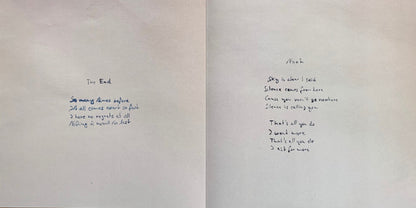 The End
So many times before
It all comes down so fast
I have no regrets at all
Nothing is meant to last
Noah
Sky is clear I said
Silence comes from here
Cause you won't go nowhere
Silence is calling you
That's all you do
I want more
That's all you do
I ask for more